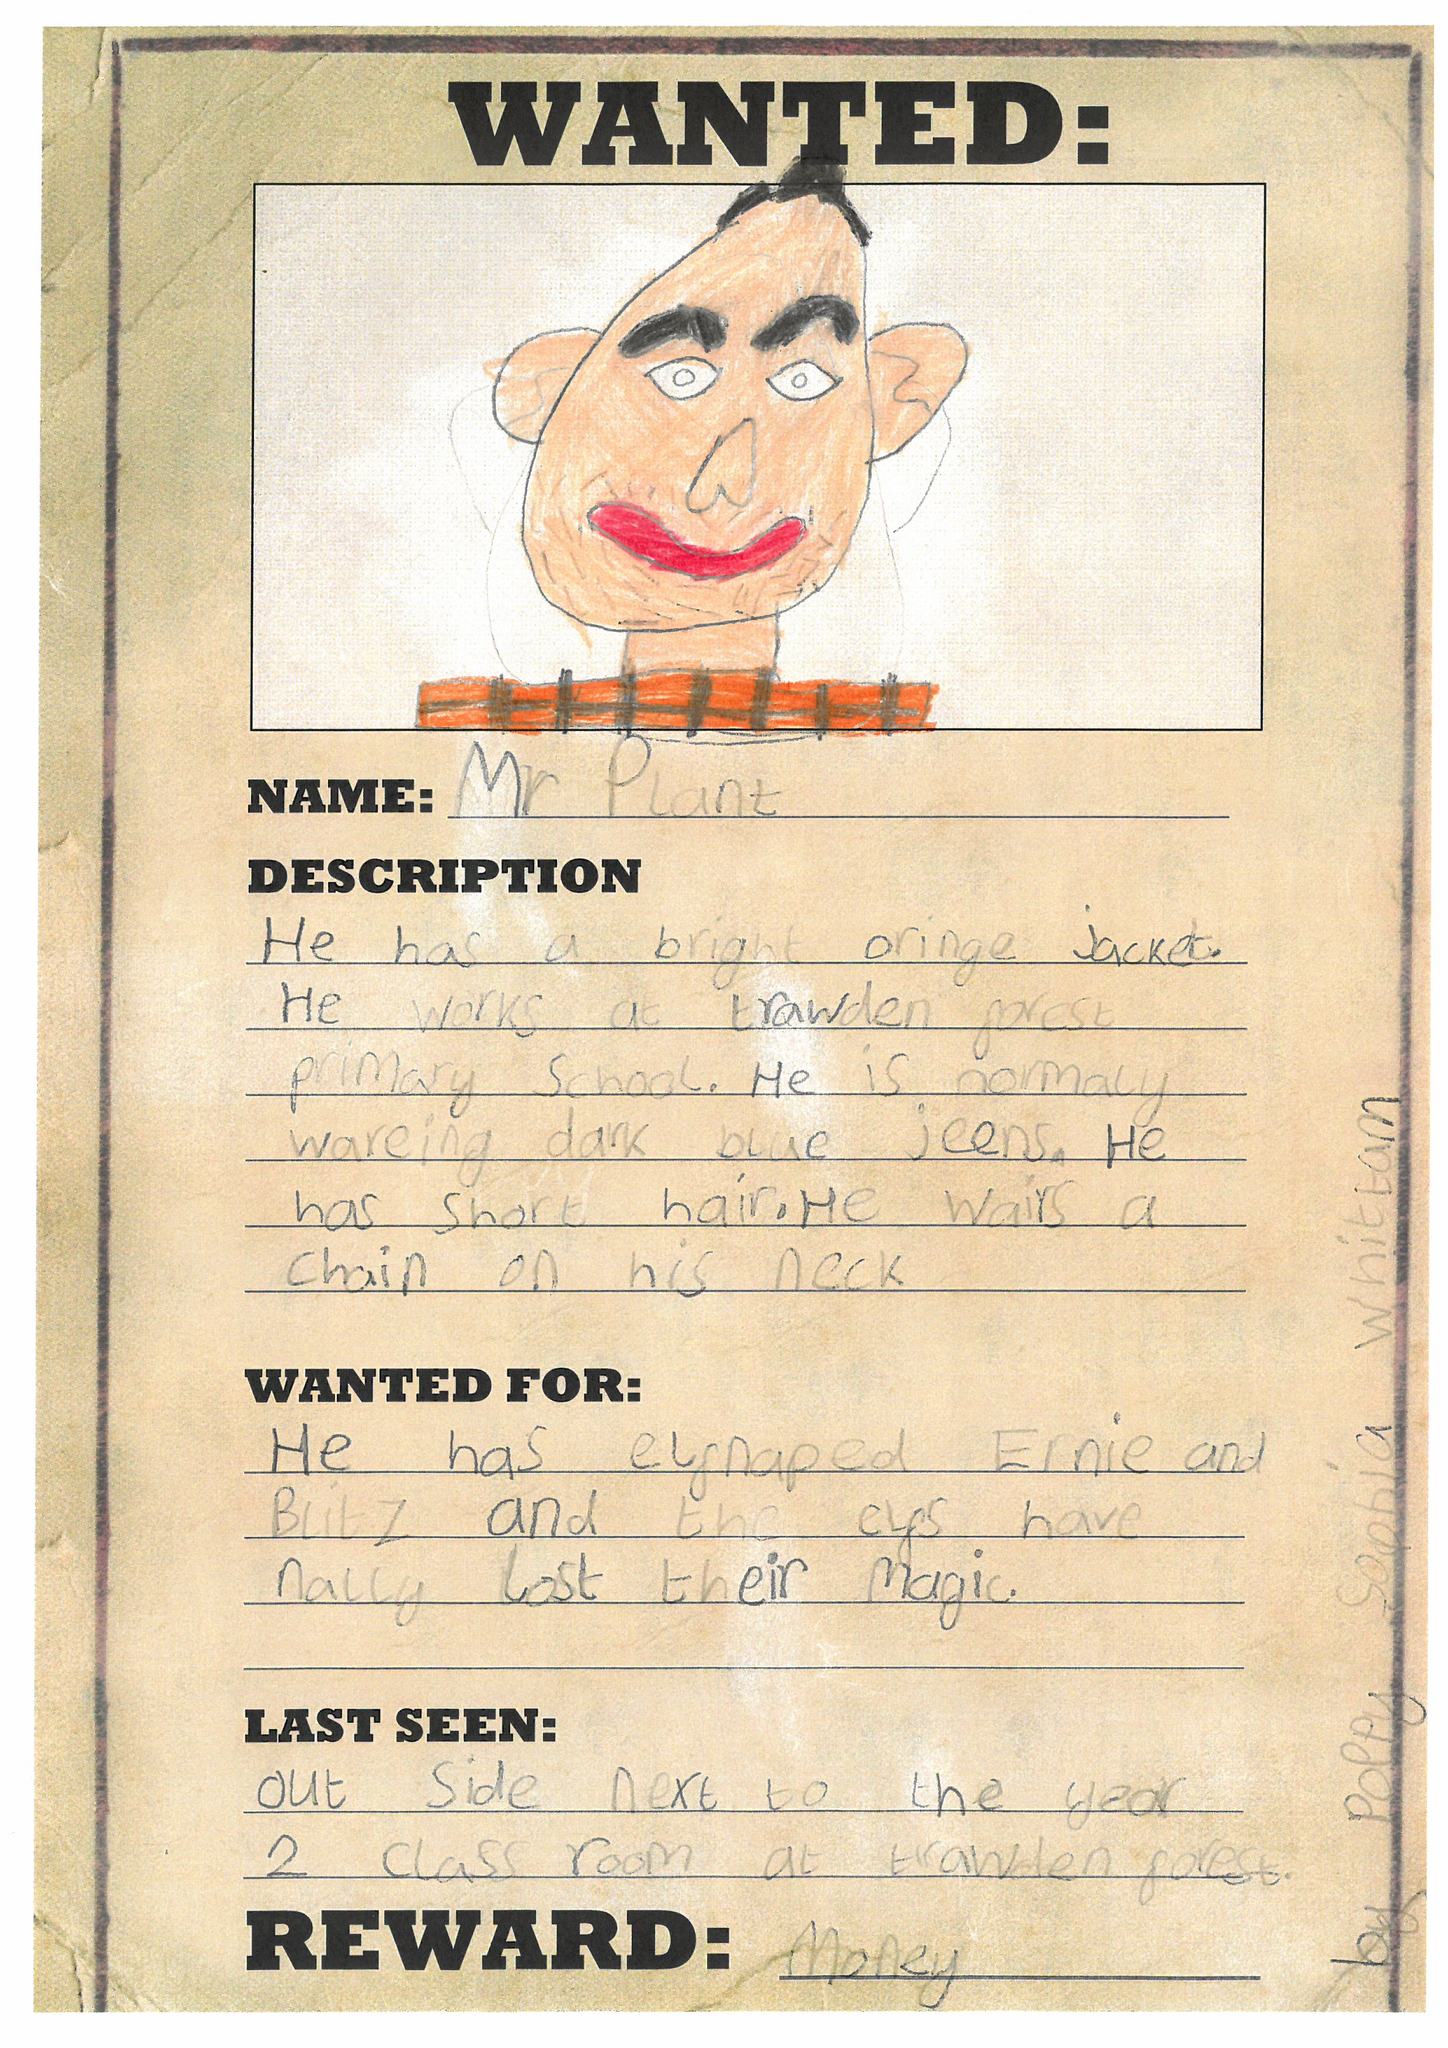 WANTED:
NAME: Mr Plant
DESCRIPTION
He has a bright oringe jacket.
He works at trawden forest
primary School. He is normaly
wareing dark blue jeens. He
has short hair. He wairs a
chain on his neck
WANTED FOR:
He has elfnaped Ernie and
Blitz and the elfs have
nally lost their magic.
LAST SEEN:
out side next to the year
2 class room at trawden forest.
REWARD: Money
by Poppy Sophia Whittam